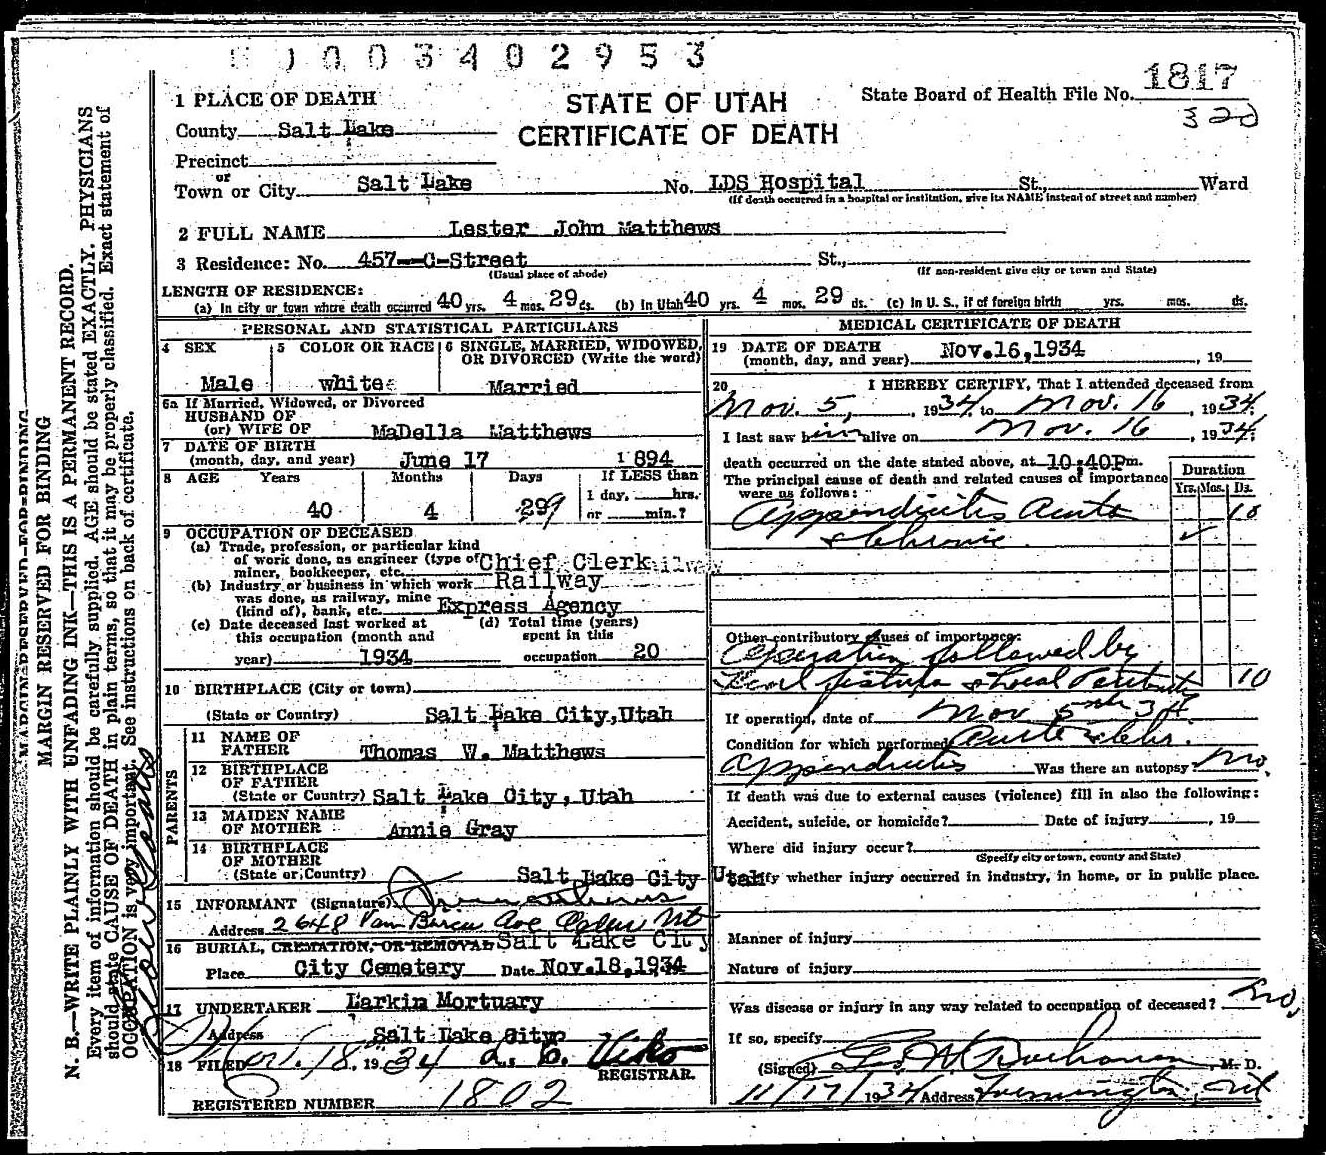 0003402953
1817
320
1 PLACE OF DEATH
STATE OF UTAH
CERTIFICATE OF DEATH
State Board of Health File No.
County Salt Lake
Precinct
or
Town or City Salt Lake No. LDS Hospital St., Ward
(If death occurred in a hospital or institution, give its NAME instead of street and number)
2 FULL NAME Lester John Matthews
3 Residence: No. 457--C-Street St.,
(Usual place of abode) (If non-resident give city or town and State)
LENGTH OF RESIDENCE:
(a) In city or town where death occurred 40 yrs. 4 mos. 29 ds. (b) In Utah 40 yrs. 4 mos. 29 ds. (c) In U. S., if of foreign birth yrs. mos. ds.
PERSONAL AND STATISTICAL PARTICULARS
4 SEX 5 COLOR OR RACE 6 SINGLE, MARRIED, WIDOWED, OR DIVORCED (Write the word)
Male white Married
6a If Married, Widowed, or Divorced
HUSBAND OF
(or) WIFE OF MaDella Matthews
7 DATE OF BIRTH
(month, day, and year) June 17 1894
8 AGE Years Months Days If LESS than
1 day, hrs.
40 4 29 or min.?
9 OCCUPATION OF DECEASED
(a) Trade, profession, or particular kind
of work done, as engineer (type of
miner, bookkeeper, etc. Chief Clerk
(b) Industry or business in which work Railway
was done, as railway, mine
(kind of), bank, etc. Express Agency
(c) Date deceased last worked at (d) Total time (years)
this occupation (month and spent in this
year) 1934 occupation 20
10 BIRTHPLACE (City or town)
(State or Country) Salt Lake City, Utah
PARENTS
11 NAME OF
FATHER Thomas W. Matthews
12 BIRTHPLACE
OF FATHER
(State or Country) Salt Lake City, Utah
13 MAIDEN NAME
OF MOTHER Annie Gray
14 BIRTHPLACE
OF MOTHER
(State or Country) Salt Lake City Utah
15 INFORMANT (Signature)
Address 2648 Van Buren Ave Ogden Ut
16 BURIAL, CREMATION, OR REMOVAL Salt Lake City
Place City Cemetery Date Nov.18,1934
17 UNDERTAKER Larkin Mortuary
Address Salt Lake City
18 FILED Nov. 18, 1934
REGISTRAR.
REGISTERED NUMBER 1802
MEDICAL CERTIFICATE OF DEATH
19 DATE OF DEATH
(month, day, and year) Nov.16,1934 , 19
20 I HEREBY CERTIFY, That I attended deceased from
Nov. 5, , 1934, to Nov. 16 , 1934.
I last saw him alive on Nov. 16 , 1934;
death occurred on the date stated above, at 10:40Pm.
The principal cause of death and related causes of importance
were as follows:
Duration
Yrs. Mos. Ds.
Appendicitis Acute 10
& Chronic
Other contributory causes of importance:
Operation followed by
Fecal fistula & local Peritonitis 10
If operation, date of Nov 5th 34
Condition for which performed Acute & Chr.
Appendicitis Was there an autopsy? No.
If death was due to external causes (violence) fill in also the following:
Accident, suicide, or homicide? Date of injury , 19
Where did injury occur?
(Specify city or town, county and State)
Specify whether injury occurred in industry, in home, or in public place.
Manner of injury
Nature of injury
Was disease or injury in any way related to occupation of deceased? No,
If so, specify
(Signed) Buchanan , M. D.
11/17/1934 Address Farmington, Ut
MARGIN RESERVED FOR BINDING
N. B.—WRITE PLAINLY WITH UNFADING INK—THIS IS A PERMANENT RECORD.
Every item of information should be carefully supplied. AGE should be stated EXACTLY. PHYSICIANS
should state CAUSE OF DEATH in plain terms, so that it may be properly classified. Exact statement of
OCCUPATION is very important. See instructions on back of certificate.